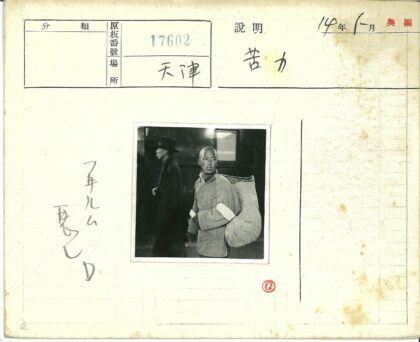 分類
原板番號
17602
場所
天津
説明
苦力
14年5一月
奥
フヰルム
悪シD